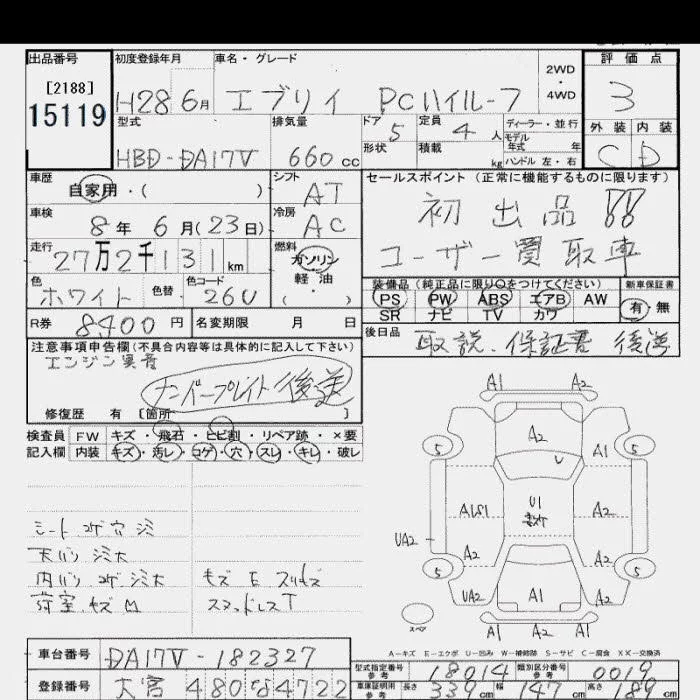 出品番号
[2188]
15119
初度登録年月
H28 6月
車名・グレード
エブリイ PCハイルーフ
2WD
・
4WD
評価点
3
外装 内装
C D
型式
HBD-DA17V
排気量
660 cc
ドア
5
形状
定員
4 人
積載
kg
ディーラー・並行
モデル
年式 年
ハンドル 左・右
車歴
自家用・( )
車検
8年 6月(23日)
走行
27万2千131km
色
ホワイト
色替
色コード
26U
シフト
AT
冷房
AC
燃料
ガソリン
軽油
( ・ )
R券 8400円
名変期限 月 日
セールスポイント (正常に機能するものに限ります)
初出品!!
ユーザー買取車
装備品(純正品に限り○をつけてください)
PS PW ABS エアB AW
SR ナビ TV カワ
新車保証書
有・無
後日品
取説、保証書 後送
注意事項申告欄(不具合内容等は具体的に記入して下さい)
エンジン異音
ナンバープレイト後送
修復歴 有 [箇所
検査員 FW キズ・飛石・ヒビ割・リペア跡・×要
記入欄 内装 キズ・汚レ・コゲ・穴・スレ・キレ・破レ
シート コゲ 穴 シミ
天バリ シミ大
内バリ コゲ シミ大
荷室 キズ M
キズ E スリキズ
スタッドレスT
A1 A2
A2
A1
5 5
U
A1S1
U1
A2
UA2
A2 A2
A2
5 5
UA2 A1 A2
スペア
A1 A2 A1
A-キズ E-エクボ U-凹み W-補修跡 S-サビ C-腐食 XX-交換済
車台番号 DA17V-182327
登録番号 大宮 480 な 4722
型式指定番号
参考
18014
類別区分番号
参考
0019
車庫証明用
参考
長さ 339cm 幅 147cm 高さ 189cm